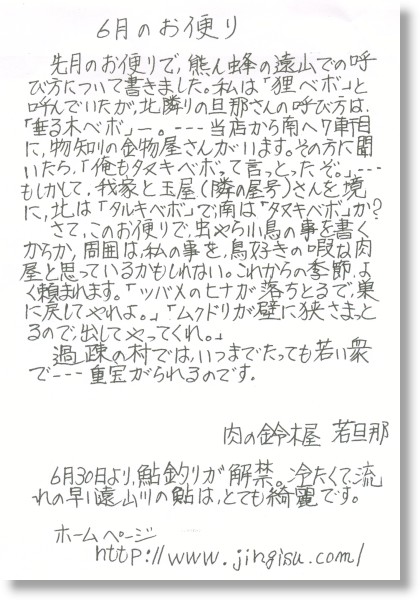 6月のお便り
先月のお便りで,熊ん蜂の遠山での呼
び方について書きました。私は「狸ベボ」と
呼んでいたが,北隣りの旦那さんの呼び方は,
「垂る木ベボ」ー。---当店から南へ7軒目
に,物知りの金物屋さんがいます。その方に聞
いたら,「俺もタヌキベボって言っとったぞ。」---
もしかして,我家と玉屋(隣の屋号)さんを境
に,北は「タルキベボ」で,南は「タヌキベボ」か?
さて,このお便りで,虫やら小鳥の事を書く
からか,周囲は,私の事を,鳥好きの暇な肉
屋と思っているかもしれない。これからの季節,よ
く頼まれます。「ツバメのヒナが落ちとるで,巣
に戻してやれよ。」「ムクドリが壁に狭さまっと
るので,出してやってくれ。」
過疎の村では,いつまでたっても若い衆
で---重宝がられるのです。
肉の鈴木屋 若旦那
6月30日より,鮎釣りが解禁。冷たくて,流
れの早い遠山川の鮎は,とても綺麗です。
ホームページ
http://www.jingisu.com/